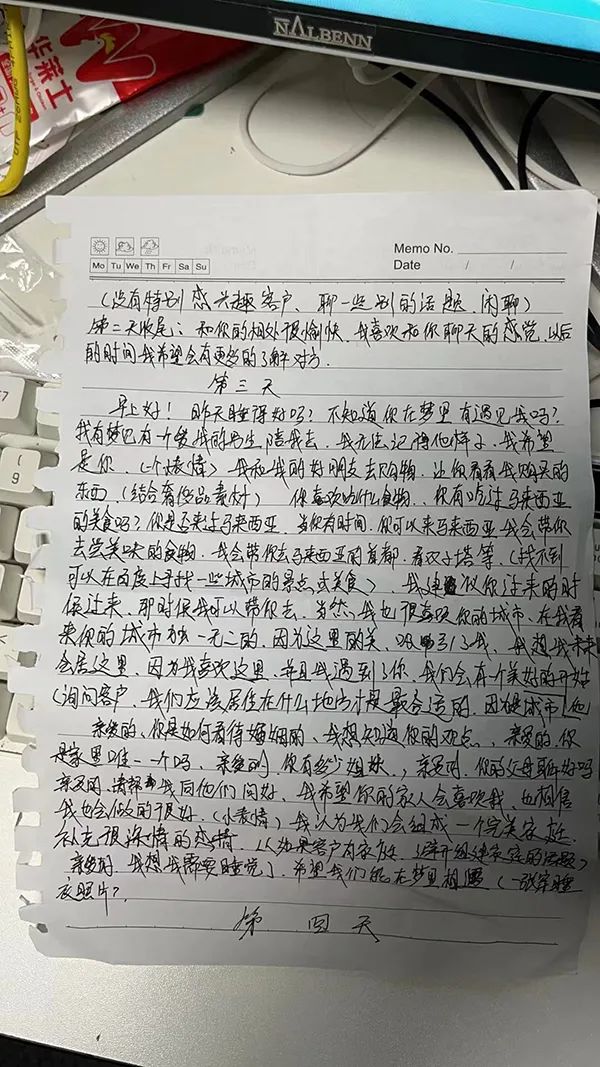 NALBENN
华莱士
UTP 26AWG
F7
(
9
Memo No.
Mo Tu We Th Fr Sa Su
Date / /
(没有特别感兴趣客户、聊一些别的话题、闲聊)
第二天收尾:和你的相处很愉快、我喜欢和你聊天的感觉、以后
的时间我希望会有更多的了解对方.
第三天
早上好!昨天睡得好吗?不知道你在梦里有遇见我吗?
我有梦见有一个男生陪我去、我无法记得他样子、我希望
是你、(一个表情)我和我的好朋友去购物、让你看看我购买的
东西(结合奢侈品素材)你喜欢吃什么食物、、你有吃过马来西亚
的美食吗?你是否来过马来西亚、当你有时间、你可以来马来西亚我会带你
去尝美味的食物、我会带你去马来西亚的首都、看双子塔等、(找不到
可以在百度上寻找一些城市的景点或美食)、我建议你过来的时
候过来、那时候我可以带你去、当然、我也很喜欢你的城市、在我看
来你的城市独一无二的、因为这里的美、吸引了我、我想我未来
会居这里、因为我喜欢这里、并且我遇到了你、我们会有一个美好的开始
(询问客户、我们应该居住在什么地方才是最合适的、因为是城市
亲爱的、你是如何看待婚姻的、我想知道你的观点、、亲爱的、你
是家里唯一一个吗、亲爱的、你有多少姐妹、,亲爱的、你的父母都好吗
亲爱的、请帮我同他们问好、我希望你的家人会喜欢我、也相信
我也会做的很好、(小表情)我认为我们会组成一个完美家庭
补充很深情的表情、(如果客户有家庭、避开组建家庭的话题)
亲爱的、我想我需要睡觉了、希望我们能在梦里相遇(一张穿睡
衣照片?
第四天